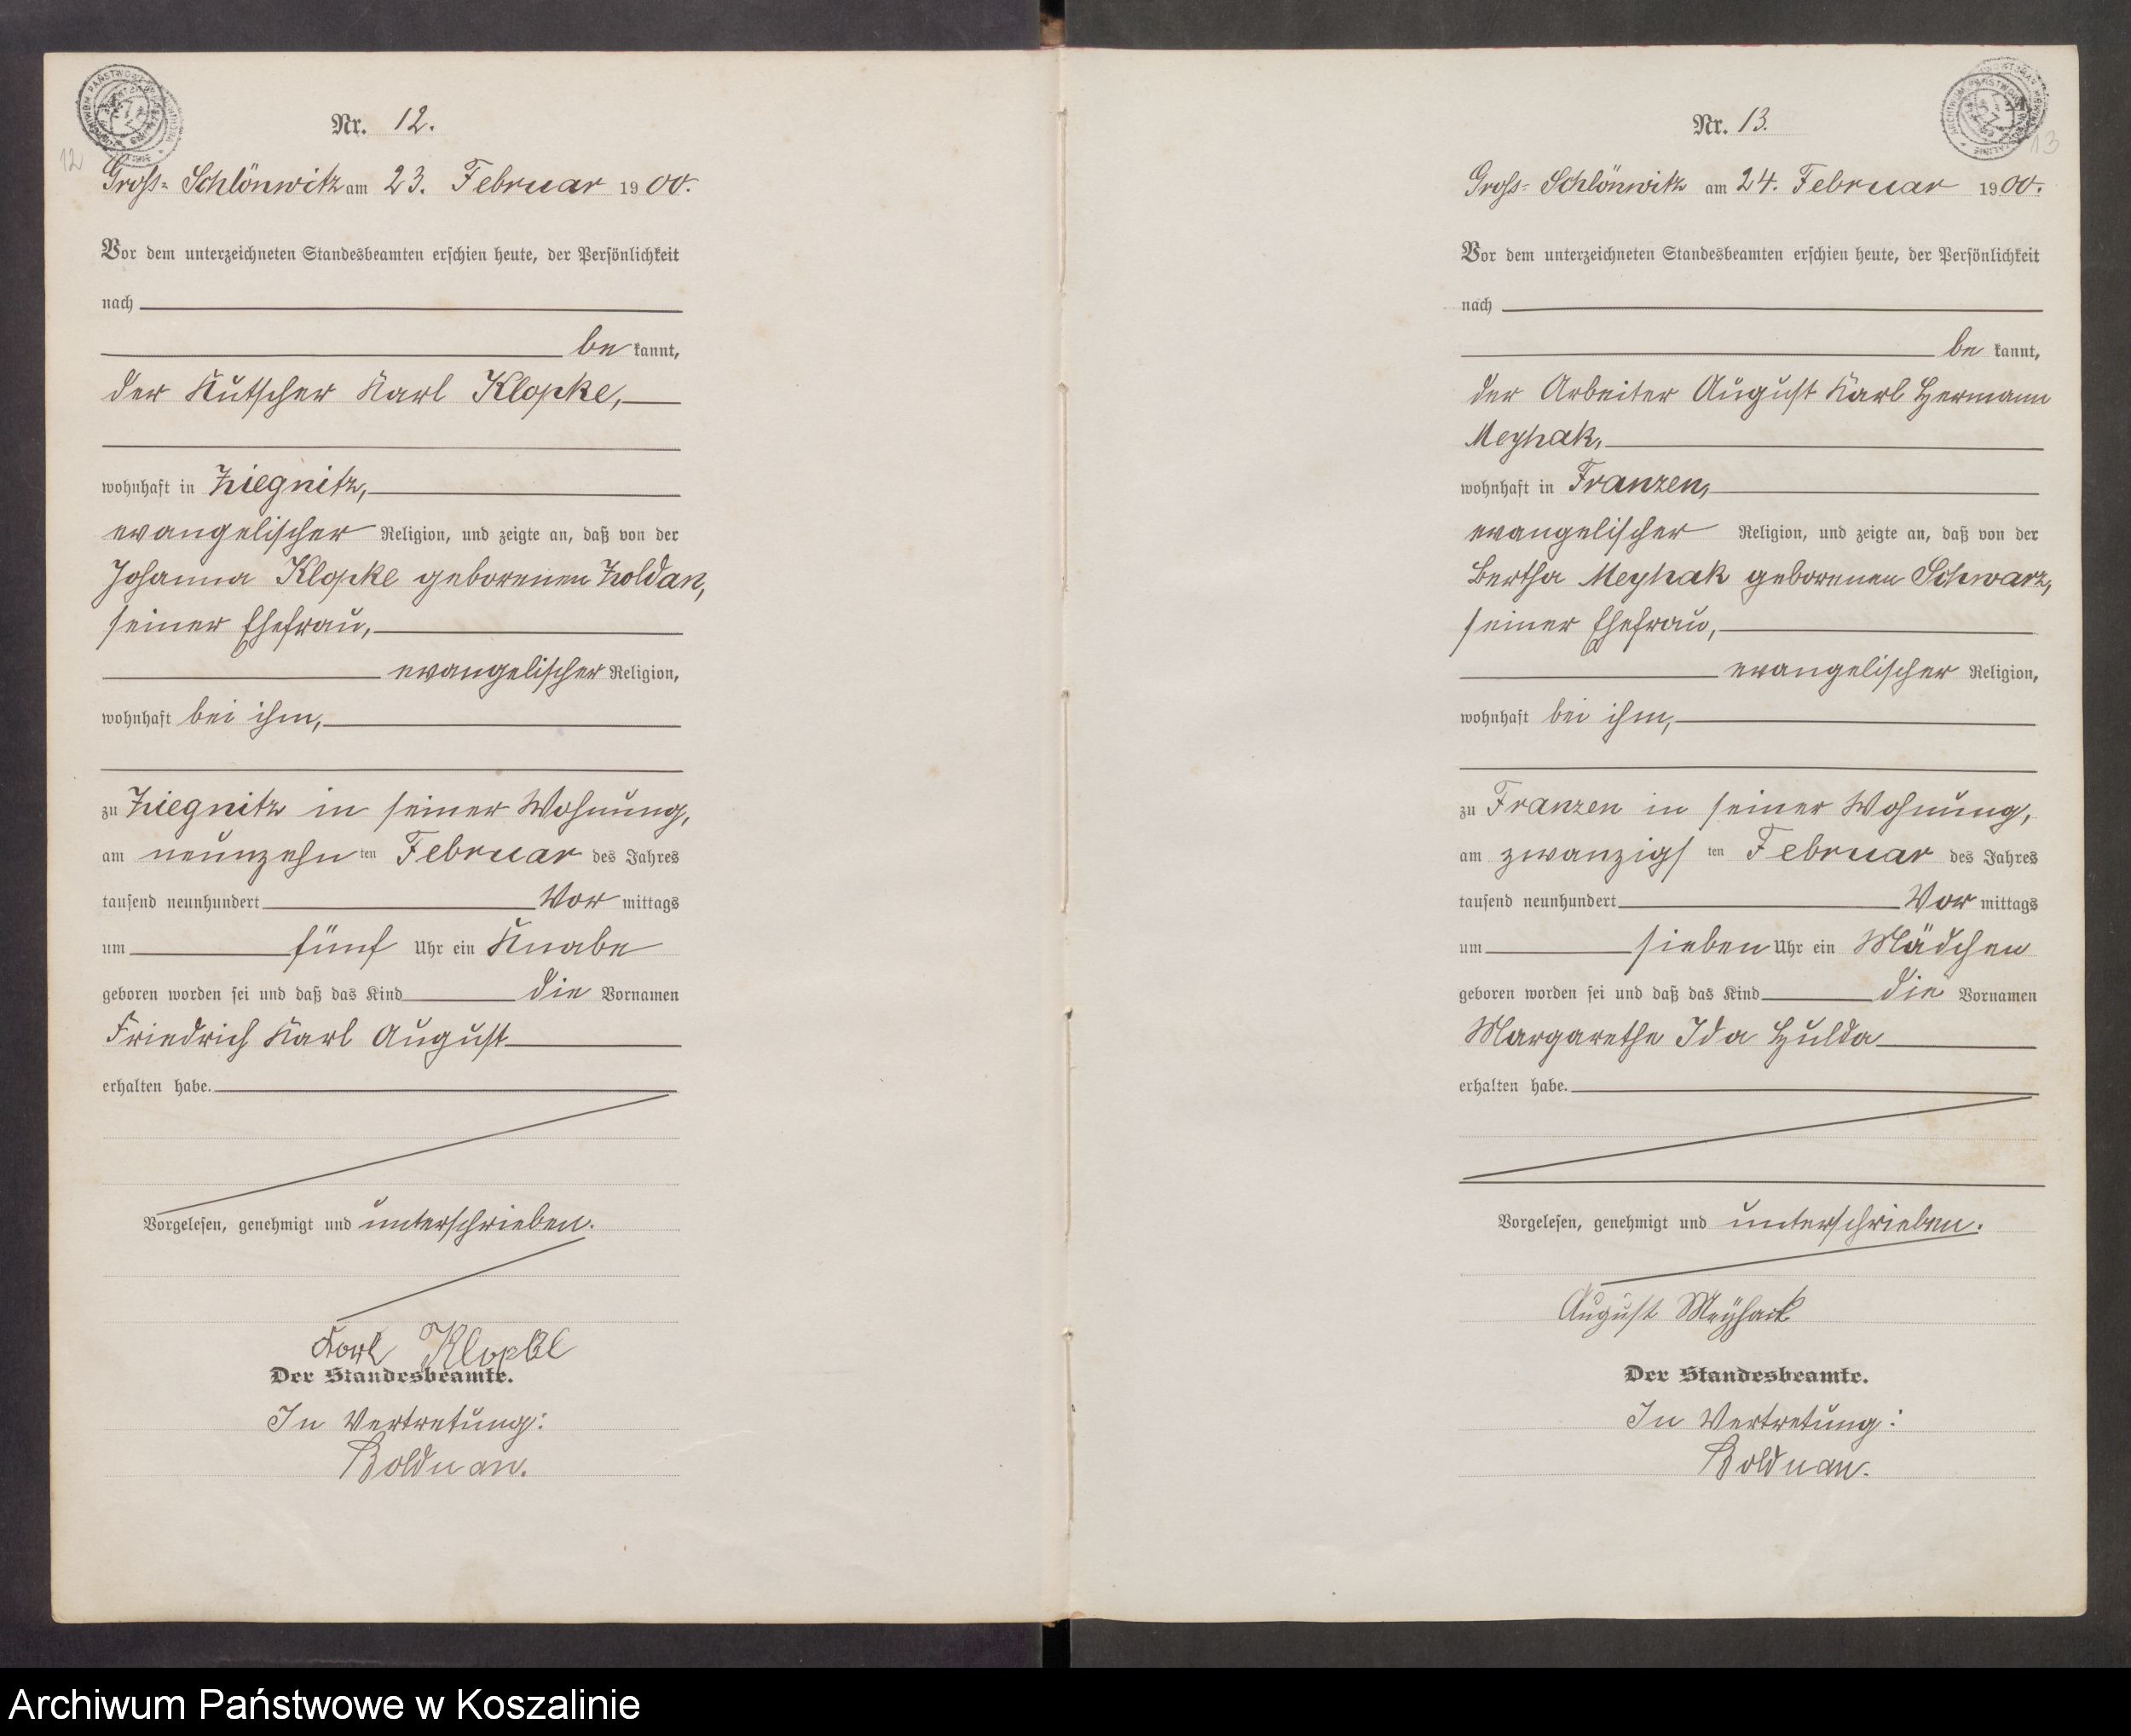 Nr. 12.
12
Groß- Schlönwitz am 23. Februar 1900.
Vor dem unterzeichneten Standesbeamten erschien heute, der Persönlichkeit
nach
be kannt,
der Kutscher Karl Klopke,
wohnhaft in Ziegnitz,
evangelischer Religion, und zeigte an, daß von der
Johanna Klopke geborenen Zoldan,
seiner Ehefrau,
evangelischer Religion,
wohnhaft bei ihm,
zu Ziegnitz in seiner Wohnung,
am neunzehn ten Februar des Jahres
tausend neunhundert Vor mittags
um fünf Uhr ein Knabe
geboren worden sei und daß das Kind die Vornamen
Friedrich Karl August
erhalten habe.
Vorgelesen, genehmigt und unterschrieben.
Karl Klopke
Der Standesbeamte.
In Vertretung:
Bolduan.
Nr. 13.
13
Groß- Schlönwitz am 24. Februar 1900.
Vor dem unterzeichneten Standesbeamten erschien heute, der Persönlichkeit
nach
be kannt,
der Arbeiter August Karl Hermann
Meyhak,
wohnhaft in Franzen,
evangelischer Religion, und zeigte an, daß von der
Bertha Meyhak geborenen Schwarz,
seiner Ehefrau,
evangelischer Religion,
wohnhaft bei ihm,
zu Franzen in seiner Wohnung,
am zwanzigs ten Februar des Jahres
tausend neunhundert Vor mittags
um sieben Uhr ein Mädchen
geboren worden sei und daß das Kind die Vornamen
Margarethe Ida Hulda
erhalten habe.
Vorgelesen, genehmigt und unterschrieben.
August Meÿhack
Der Standesbeamte.
In Vertretung:
Bolduan.
Archiwum Państwowe w Koszalinie